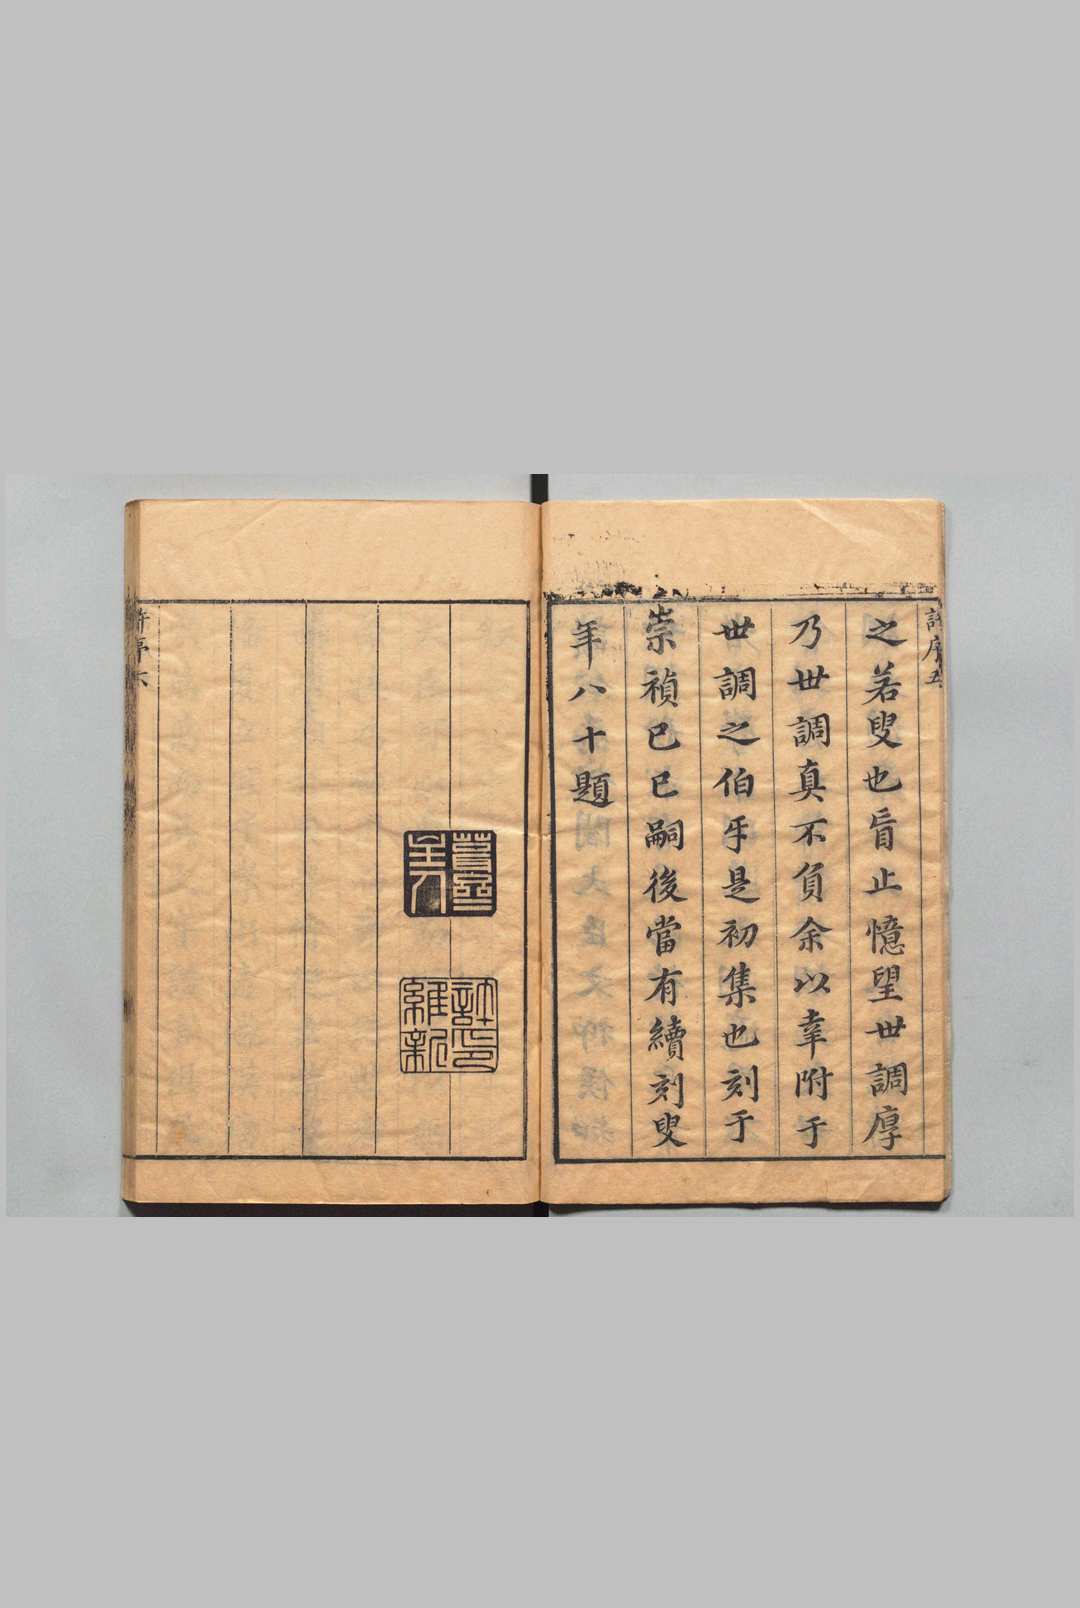 許序五
之若叟也止憶望世調厚
乃世調真不負余以幸附于
世調之伯牙是初集也刻于
崇禎己巳嗣後當有續刻叟
年八十題
許印維新
許序六